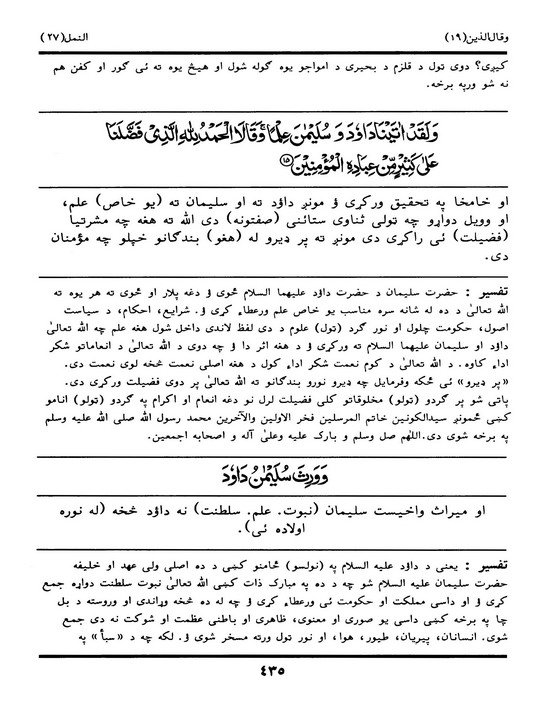 وقال‌الذین(۱۹) النمل(۲۷)
کیږی؟ دوی ټول د قلزم د بحیری د امواجو یوه ګوله شول او هیڅ یوه ته ئی ګور او کفن هم
نه شو وریه برخه.
وَلَقَدْ اٰتَيْنَا دَاوٗدَ وَ سُلَيْمٰنَ عِلْمًا وَقَالَا الْحَمْدُ لِلّٰهِ الَّذِيْ فَضَّلَنَا
عَلٰى كَثِيْرٍ مِّنْ عِبَادِهِ الْمُؤْمِنِيْنَ ۱۵
او خامخا په تحقیق ورکړی ؤ مونږ داؤد ته او سلیمان ته (یو خاص) علم،
او وویل دواړو چه ټولی ثناوی ستائنی (صفتونه) دی الله ته هغه چه مشرتیا
(فضیلت) ئی راکړی دی مونږ ته پر ډیرو له (هغو) بندګانو خپلو چه مؤمنان
دی.
تفسیر : حضرت سلیمان د حضرت داؤد علیهما السلام ځوی ؤ دغه پلار او ځوی ته هر یوه ته
الله تعالیٰ د ده له شانه سره مناسب یو خاص علم ورعطاء کړی ؤ. شرایع، احکام، د سیاست
اصول، حکومت چلول او نور ګرد (ټول) علوم د دی لفظ لاندی داخل شول هغه علم چه الله تعالیٰ
داؤد او سلیمان علیهما السلام ته ورکړی ؤ د هغه اثر دا ؤ چه دوی د الله تعالیٰ د انعاماتو شکر
اداء کاوه. د الله تعالیٰ د کوم نعمت شکر اداء کول د هغه اصلی نعمت څخه لوی نعمت دی.
«پر ډیرو» ئی ځکه وفرمایل چه ډیرو نورو بندګانو ته الله تعالیٰ پر دوی فضیلت ورکړی دی.
پاتی شو پر ګردو (ټولو) مخلوقاتو کلی فضیلت لرل نو دغه انعام او اکرام په ګردو (ټولو) انامو
کښی ځمونږ سیدالکونین خاتم المرسلین فخر الاولین والآخرین محمد رسول الله صلی الله علیه وسلم
په برخه شوی دی.اللهم صل وسلم و بارک علیه وعلیٰ آله و اصحابه اجمعین.
وَوَرِثَ سُلَيْمٰنُ دَاوٗدَ
او میراث واخیست سلیمان (نبوت. علم. سلطنت) نه داؤد څخه (له نوره
اولاده ئی).
تفسیر : یعنی د داؤد علیه السلام په (نولسو) ځامنو کښی د ده اصلی ولی عهد او خلیفه
حضرت سلیمان علیه السلام شو چه د ده په مبارک ذات کښی الله تعالیٰ نبوت سلطنت دواړه جمع
کړی ؤ او داسی مملکت او حکومت ئی ورعطاء کړی ؤ چه له ده څخه وړاندی او وروسته د بل
چا په برخه کښی داسی یو صوری او معنوی، ظاهری او باطنی عظمت او شوکت نه دی جمع
شوی. انسانان، پیریان، طیور، هوا، او نور ټول ورته مسخر شوی ؤ. لکه چه د «سبأ» په
۴۳۵